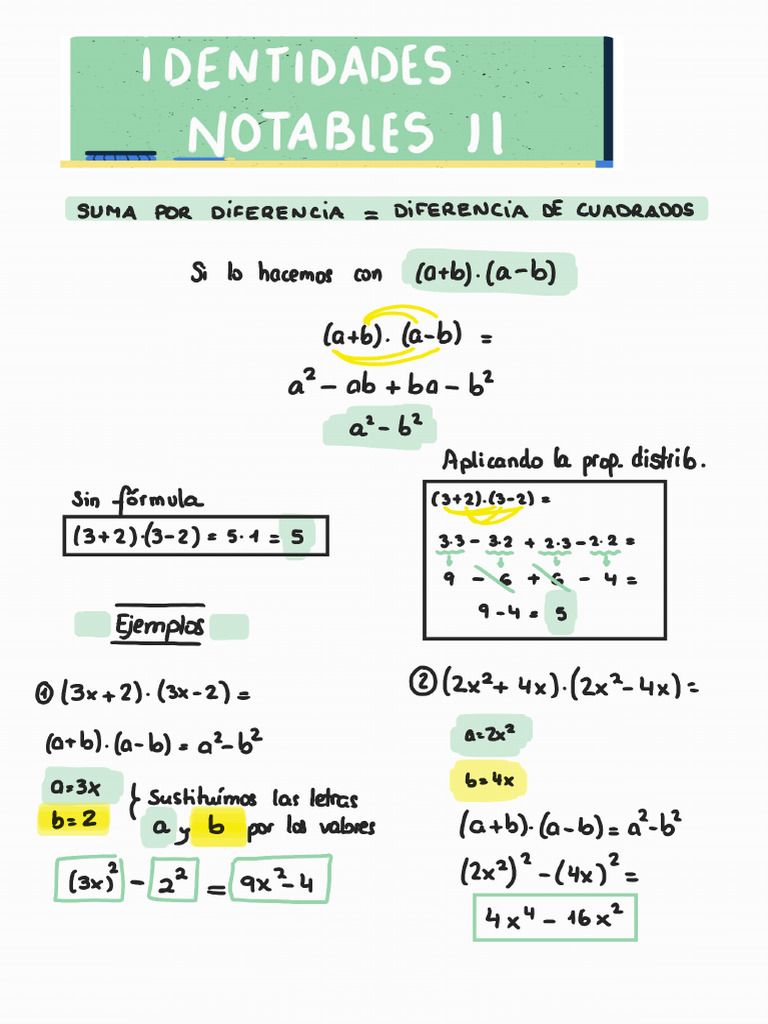 IDENTIDADES
NOTABLES II
SUMA POR DIFERENCIA = DIFERENCIA DE CUADRADOS
Si lo hacemos con (a+b)·(a-b)
(a+b)·(a-b) =
a² - ab + ba - b²
a² - b²
Sin fórmula
(3+2)·(3-2) = 5·1 = 5
Aplicando la prop. distrib.
(3+2)·(3-2) =
3·3 - 3·2 + 2·3 - 2·2 =
9 - 6 + 6 - 4 =
9-4 = 5
Ejemplos
① (3x+2)·(3x-2) =
(a+b)·(a-b) = a²-b²
a=3x
b=2
Sustituímos las letras
a y b por los valores
(3x)² - 2² = 9x²-4
② (2x²+4x)·(2x²-4x) =
a=2x²
b=4x
(a+b)·(a-b) = a²-b²
(2x²)² - (4x)² =
4x⁴ - 16x²